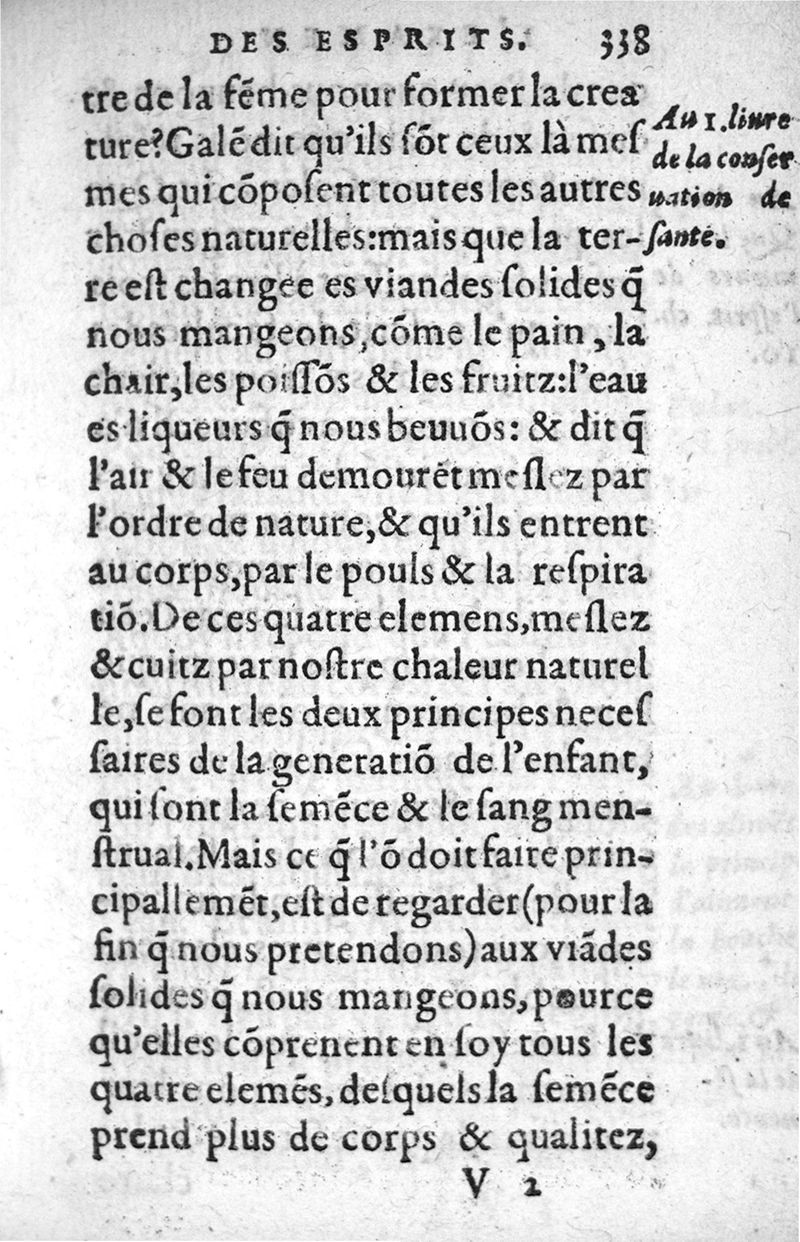 DES ESPRITS. 338
tre de la fẽme pour former la crea
ture? Galẽ dit qu'ils ſõt ceux là meſ
mes qui cõpoſent toutes les autres
choſes naturelles: mais que la ter-
re eſt changee es viandes ſolides q̃
nous mangeons, cõme le pain, la
chair, les poiſſõs & les fruitz: l'eau
es liqueurs q̃ nous beuuõs: & dit q̃
l'air & le feu demourẽt meſlez par
l'ordre de nature, & qu'ils entrent
au corps, par le pouls & la reſpira
tiõ. De ces quatre elemens, meſlez
& cuitz par noſtre chaleur naturel
le, ſe font les deux principes neceſ
ſaires de la generatiõ de l'enfant,
qui ſont la ſemẽce & le ſang men-
ſtrual. Mais ce q̃ l'õ doit faire prin-
cipallemẽt, eſt de regarder (pour la
fin q̃ nous pretendons) aux viãdes
ſolides q̃ nous mangeons, pource
qu'elles cõprenent en ſoy tous les
quatre elemẽs, deſquels la ſemẽce
prend plus de corps & qualitez,
V 2
Au 1. liure
de la conſer
uation de
ſante.